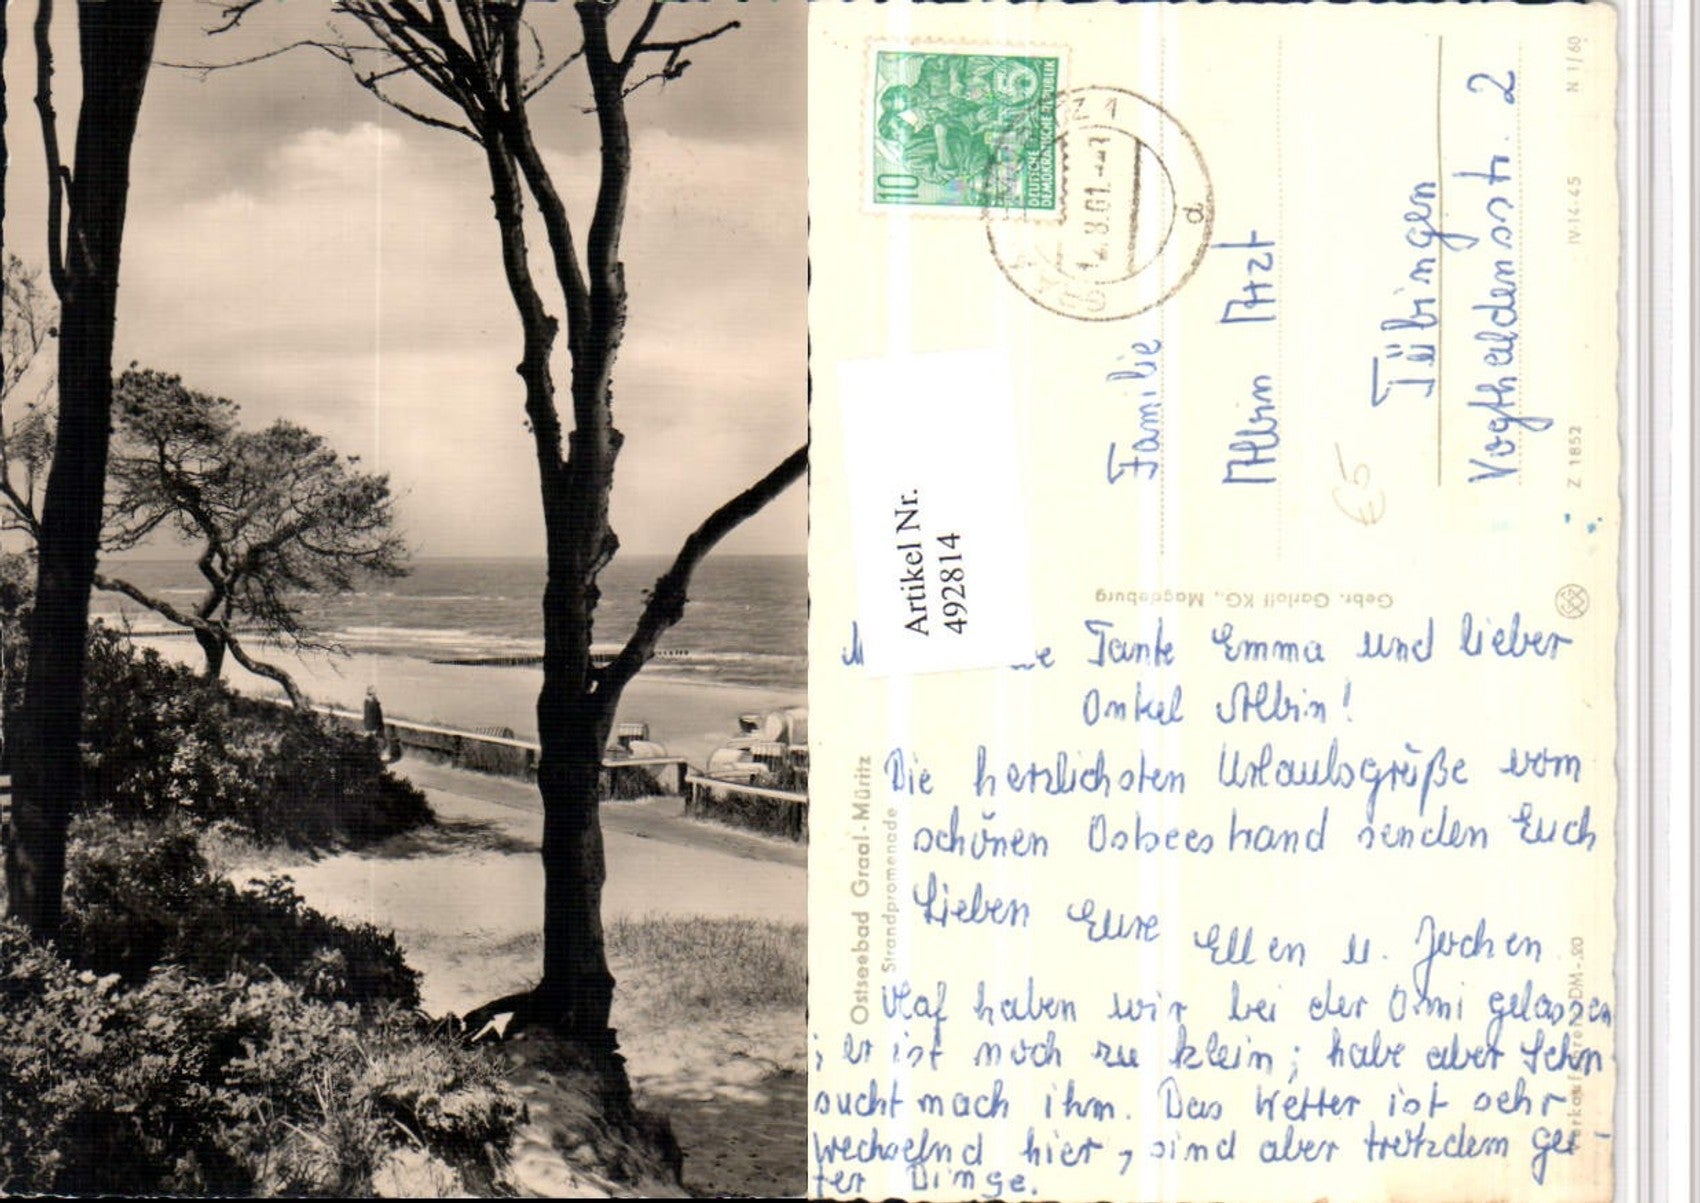 10
DEUTSCHE
DEMOKRATISCHE REPUBLIK
5
Familie
Albin Arzt
Tübingen
Vogtheldenstr. 2
Artikel Nr.
492814
€5
Z 1852
IV-14-45
N 1/60
Gebr. Garloff KG., Magdeburg
Ostseebad Graal-Müritz
Strandpromenade
Tante Emma und lieber
Onkel Albin!
Die herzlichsten Urlaubsgrüße vom
schönen Ostseestrand senden Euch
Lieben Eure Ellen u. Jochen
Olaf haben wir bei der Omi gelassen
; er ist noch zu klein; habe aber Sehn
sucht nach ihm. Das Wetter ist sehr
wechselnd hier, sind aber trotzdem gu-
ter Dinge.